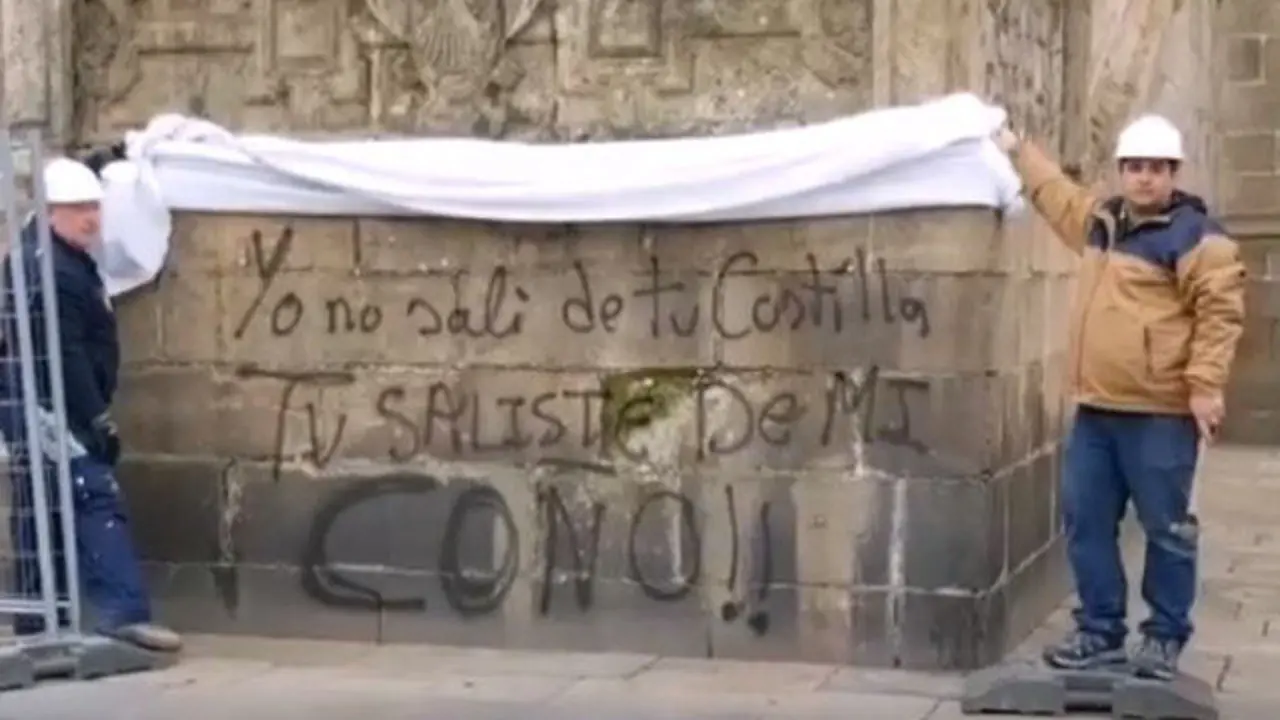 Yo no sali de tu Costilla
TU SALISTE De MI
¡COÑO!!